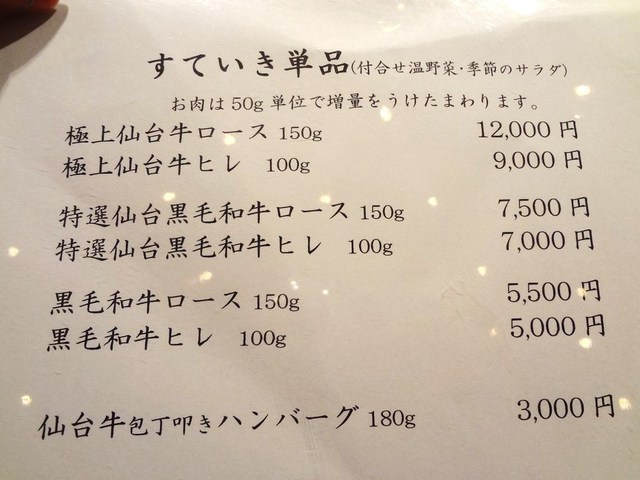 すていき単品(付合せ温野菜・季節のサラダ)
お肉は50g単位で増量をうけたまわります。
極上仙台牛ロース 150g 12,000円
極上仙台牛ヒレ 100g 9,000円
特選仙台黒毛和牛ロース 150g 7,500円
特選仙台黒毛和牛ヒレ 100g 7,000円
黒毛和牛ロース 150g 5,500円
黒毛和牛ヒレ 100g 5,000円
仙台牛包丁叩きハンバーグ 180g 3,000円